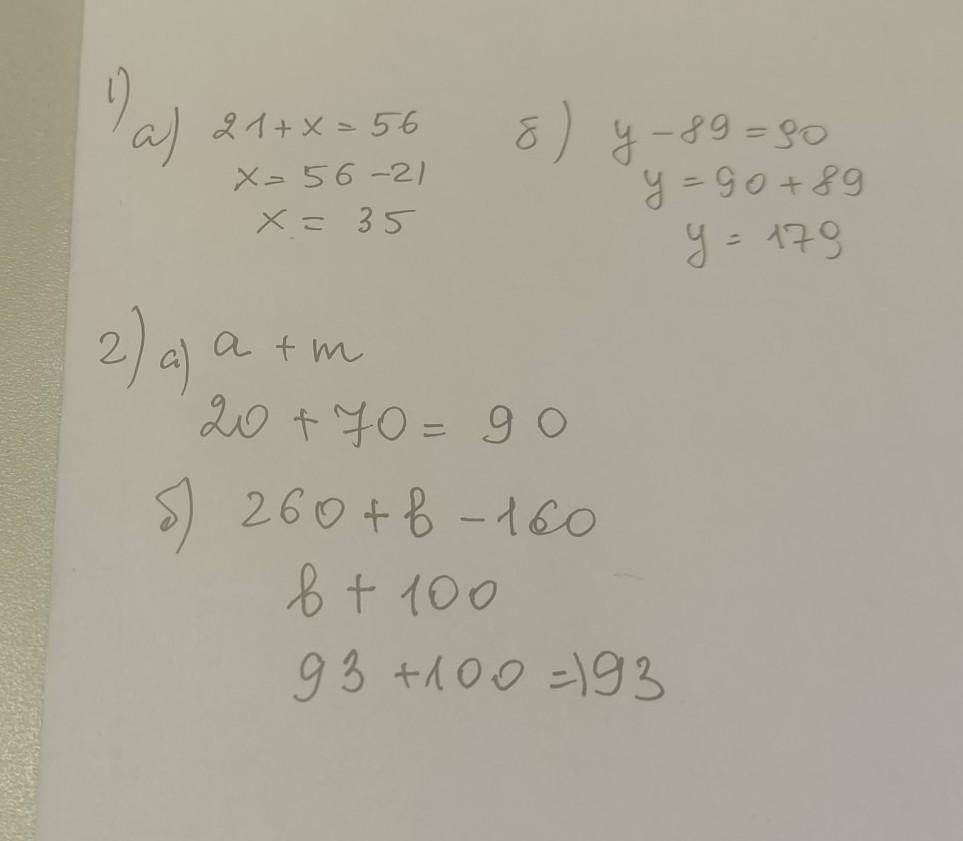 1)
а) 21 + x = 56
x = 56 - 21
x = 35
б) y - 89 = 90
y = 90 + 89
y = 179
2) а) a + m
20 + 70 = 90
б) 260 + b - 160
b + 100
93 + 100 = 193